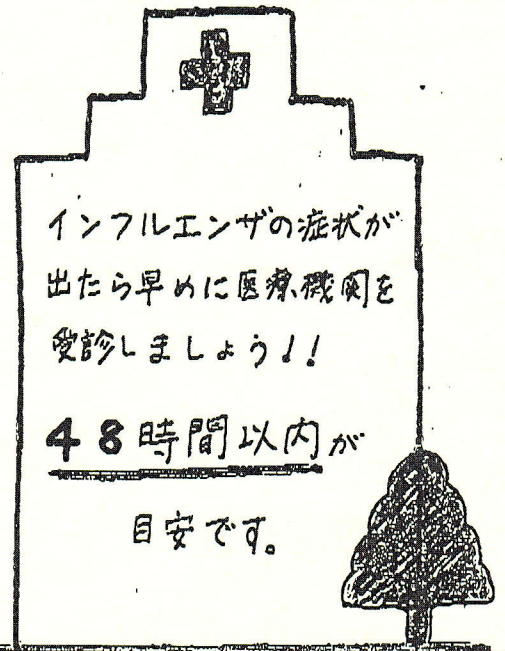 インフルエンザの症状が
出たら早めに医療機関を
受診しましょう!!
48時間以内が
目安です。